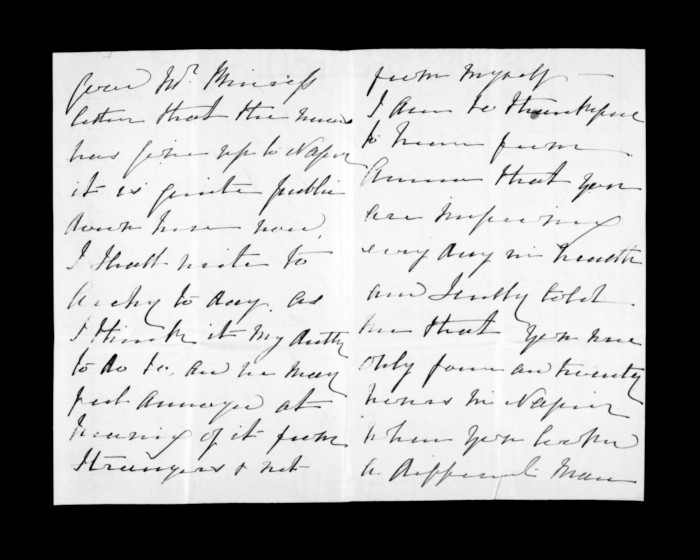 your Mr. Princess
letter that the news
has gone up to Napier
it is quite public
down here now,
I shall write to
Archy to day. as
I think it my duty
to do so, and he may
feel annoyed at
hearing of it from
strangers & not
from myself —
I am so thankful
to hear from
Annie that you
are improving
every day in health
and Scully told
me that you were
only four and twenty
hours in Napier
when you looked
a different man